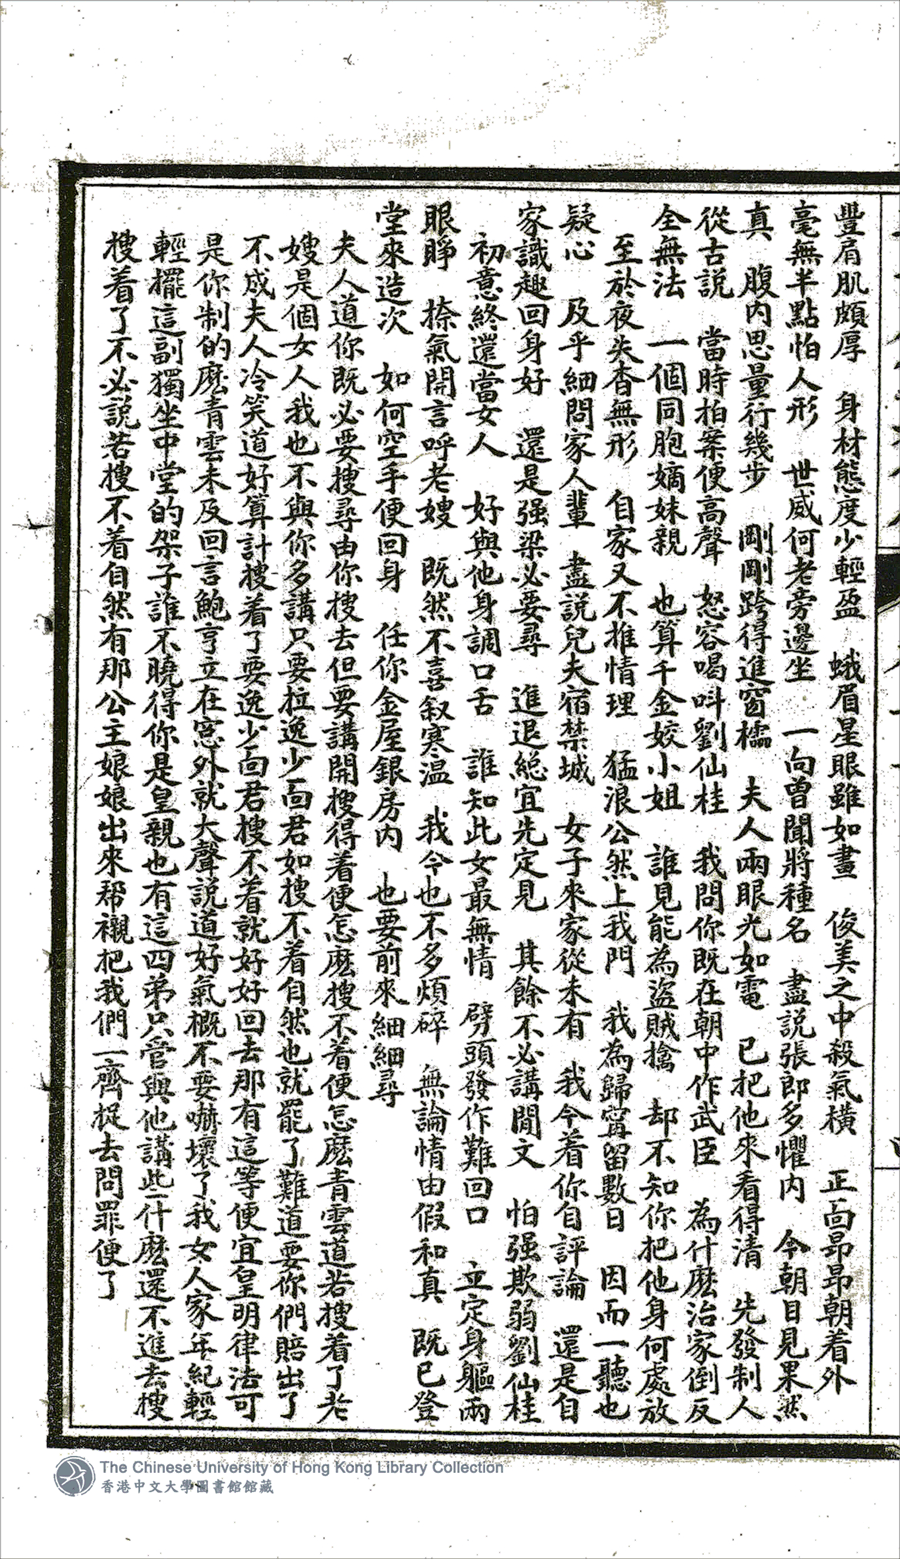 豐肩肌頗厚　身材態度少輕盈　蛾眉星眼雖如畫　俊美之中殺氣橫　正面昂昂朝着外
毫無半點怕人形　世威何老旁邊坐　一向曾聞將種名　盡說張郎多懼內　今朝目見果然
真　腹內思量行幾步　剛剛跨得進窗櫺　夫人兩眼光如電　已把他來看得清　先發制人
從古說　當時拍案便高聲　怒容喝呌劉仙桂　我問你既在朝中作武臣　為什麽治家倒反
全無法　一個同胞嫡妹親　也算千金姣小姐　誰見能為盜賊擒　却不知你把他身何處放
至於夜失杳無形　自家又不推情理　猛浪公然上我門　我為歸寗留數日　因而一聽也
疑心　及乎細問家人輩　盡說兒夫宿禁城　女子來家從未有　我今着你自評論　還是自
家識趣回身好　還是强梁必要尋　進退總宜先定見　其餘不必講閒文　怕强欺弱劉仙桂
初意終還當女人　好與他身調口舌　誰知此女最無情　劈頭發作難回口　立定身軀兩
眼睜　捺氣開言呼老嫂　既然不喜敘寒温　我今也不多煩碎　無論情由假和真　既已登
堂來造次　如何空手便回身　任你金屋銀房內　也要前來細細尋
夫人道你既必要搜尋由你搜去但要講開搜得着便怎麽搜不着便怎麽青雲道若搜着了老
嫂是個女人我也不與你多講只要拉逸少面君如搜不着自然也就罷了難道要你們賠出了
不成夫人冷笑道好算計搜着了要逸少面君搜不着就好好回去那有這等便宜皇明律法可
是你制的麽青雲未及回言鮑亨立在窓外就大聲説道好氣概不要嚇壞了我女人家年紀輕
輕擺這副獨坐中堂的架子誰不曉得你是皇親也有這四弟只管與他講些什麽還不進去搜
搜着了不必説若搜不着自然有那公主娘娘出來帮襯把我們一齊捉去問罪便了
The Chinese University of Hong Kong Library Collection
香港中文大學圖書館館藏